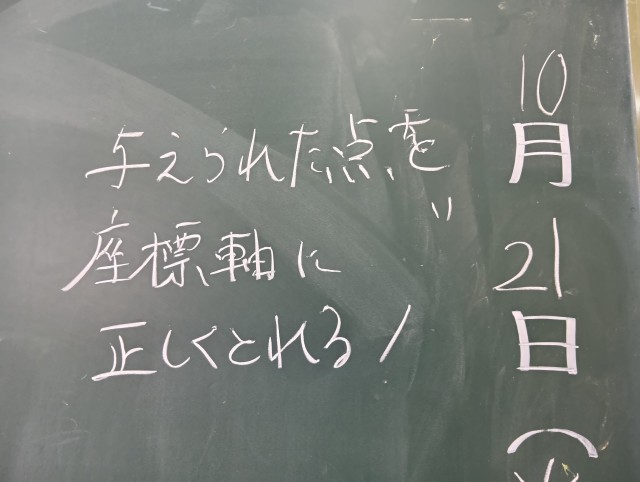 10月21日(
与えられた点を
座標軸に
正しくとれる!